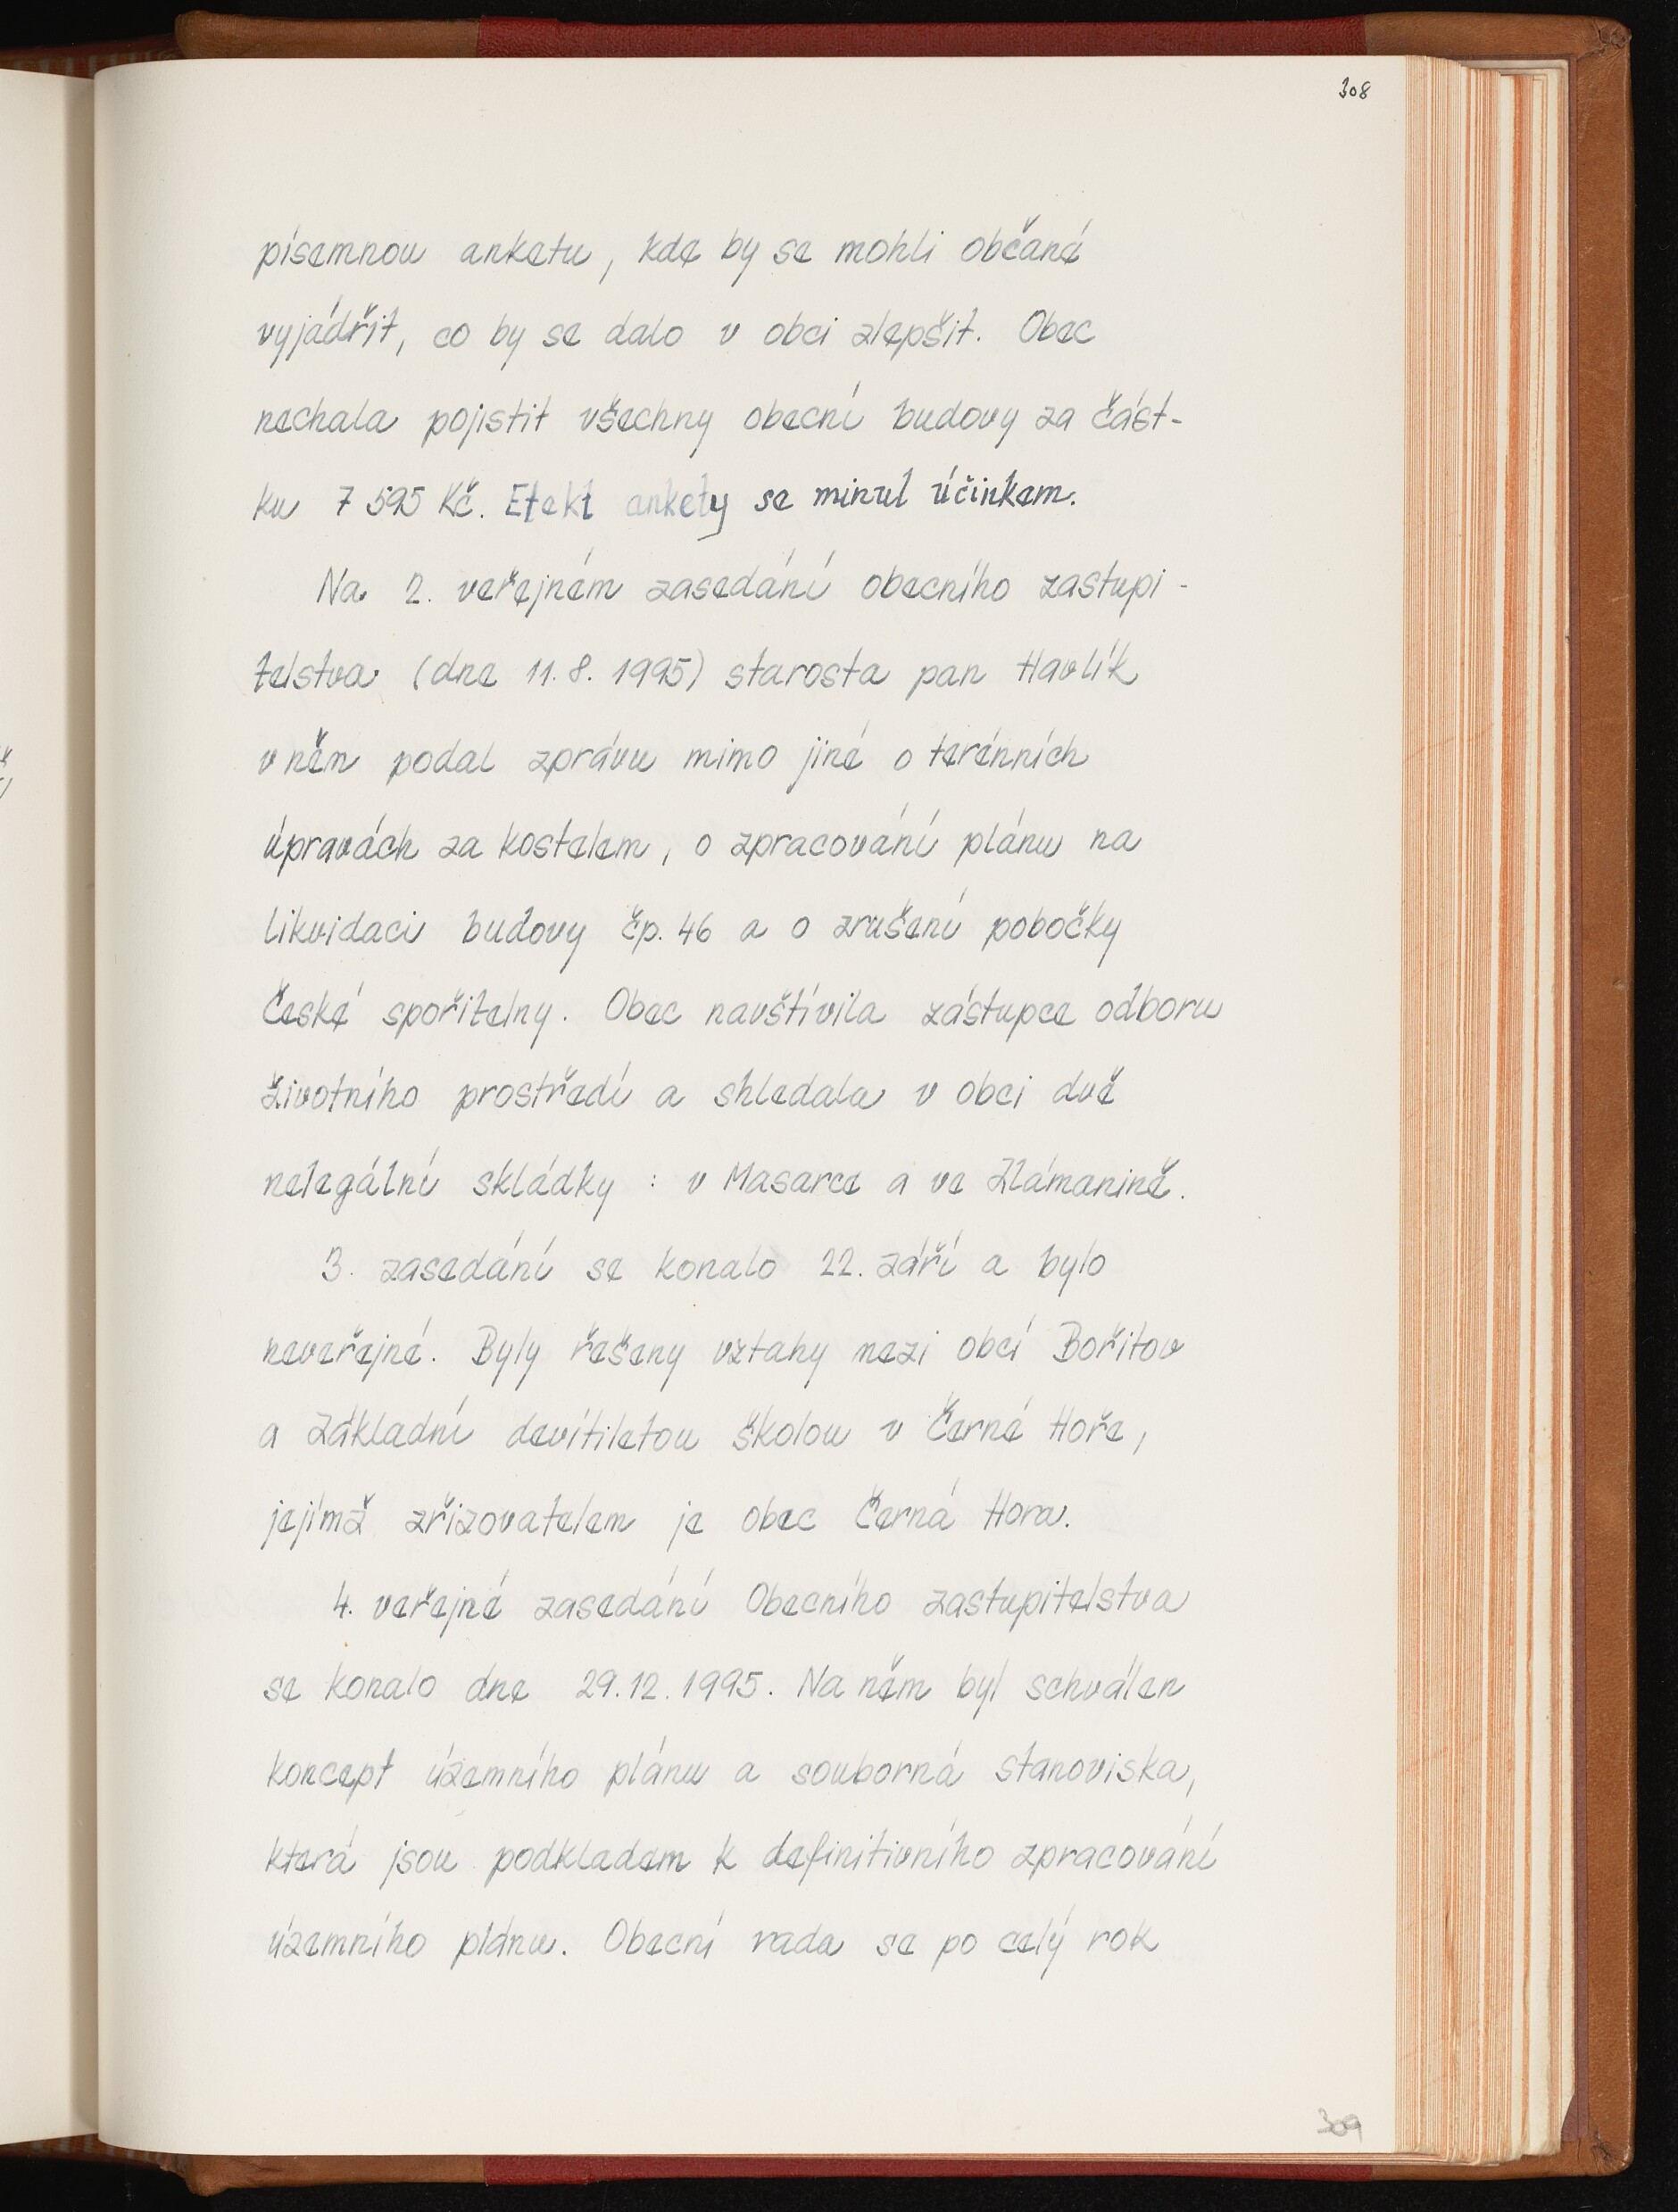 308
písemnou anketu, kde by se mohli občané
vyjádřit, co by se dalo v obci zlepšit. Obec
nechala pojistit všechny obecní budovy za část-
ku 7 595 Kč. Efekt ankety se minul účinkem.
Na 2. veřejném zasedání obecního zastupi-
telstva (dne 11. 8. 1995) starosta pan Havlík
v něm podal zprávu mimo jiné o terénních
úpravách za kostelem, o zpracování plánu na
likvidaci budovy čp. 46 a o zrušení pobočky
České spořitelny. Obec navštívila zástupce odboru
životního prostředí a shledala v obci dvě
nelegální skládky : v Masarce a ve Zlámanině.
3. zasedání se konalo 22. září a bylo
neveřejné. Byly řešeny vztahy mezi obcí Bořitov
a Základní devítiletou školou v Černé Hoře,
jejímž zřizovatelem je obec Černá Hora.
4. veřejné zasedání Obecního zastupitelstva
se konalo dne 29. 12. 1995. Na něm byl schválen
koncept územního plánu a souborná stanoviska,
která jsou podkladem k definitivního zpracování
územního plánu. Obecní rada se po celý rok
309